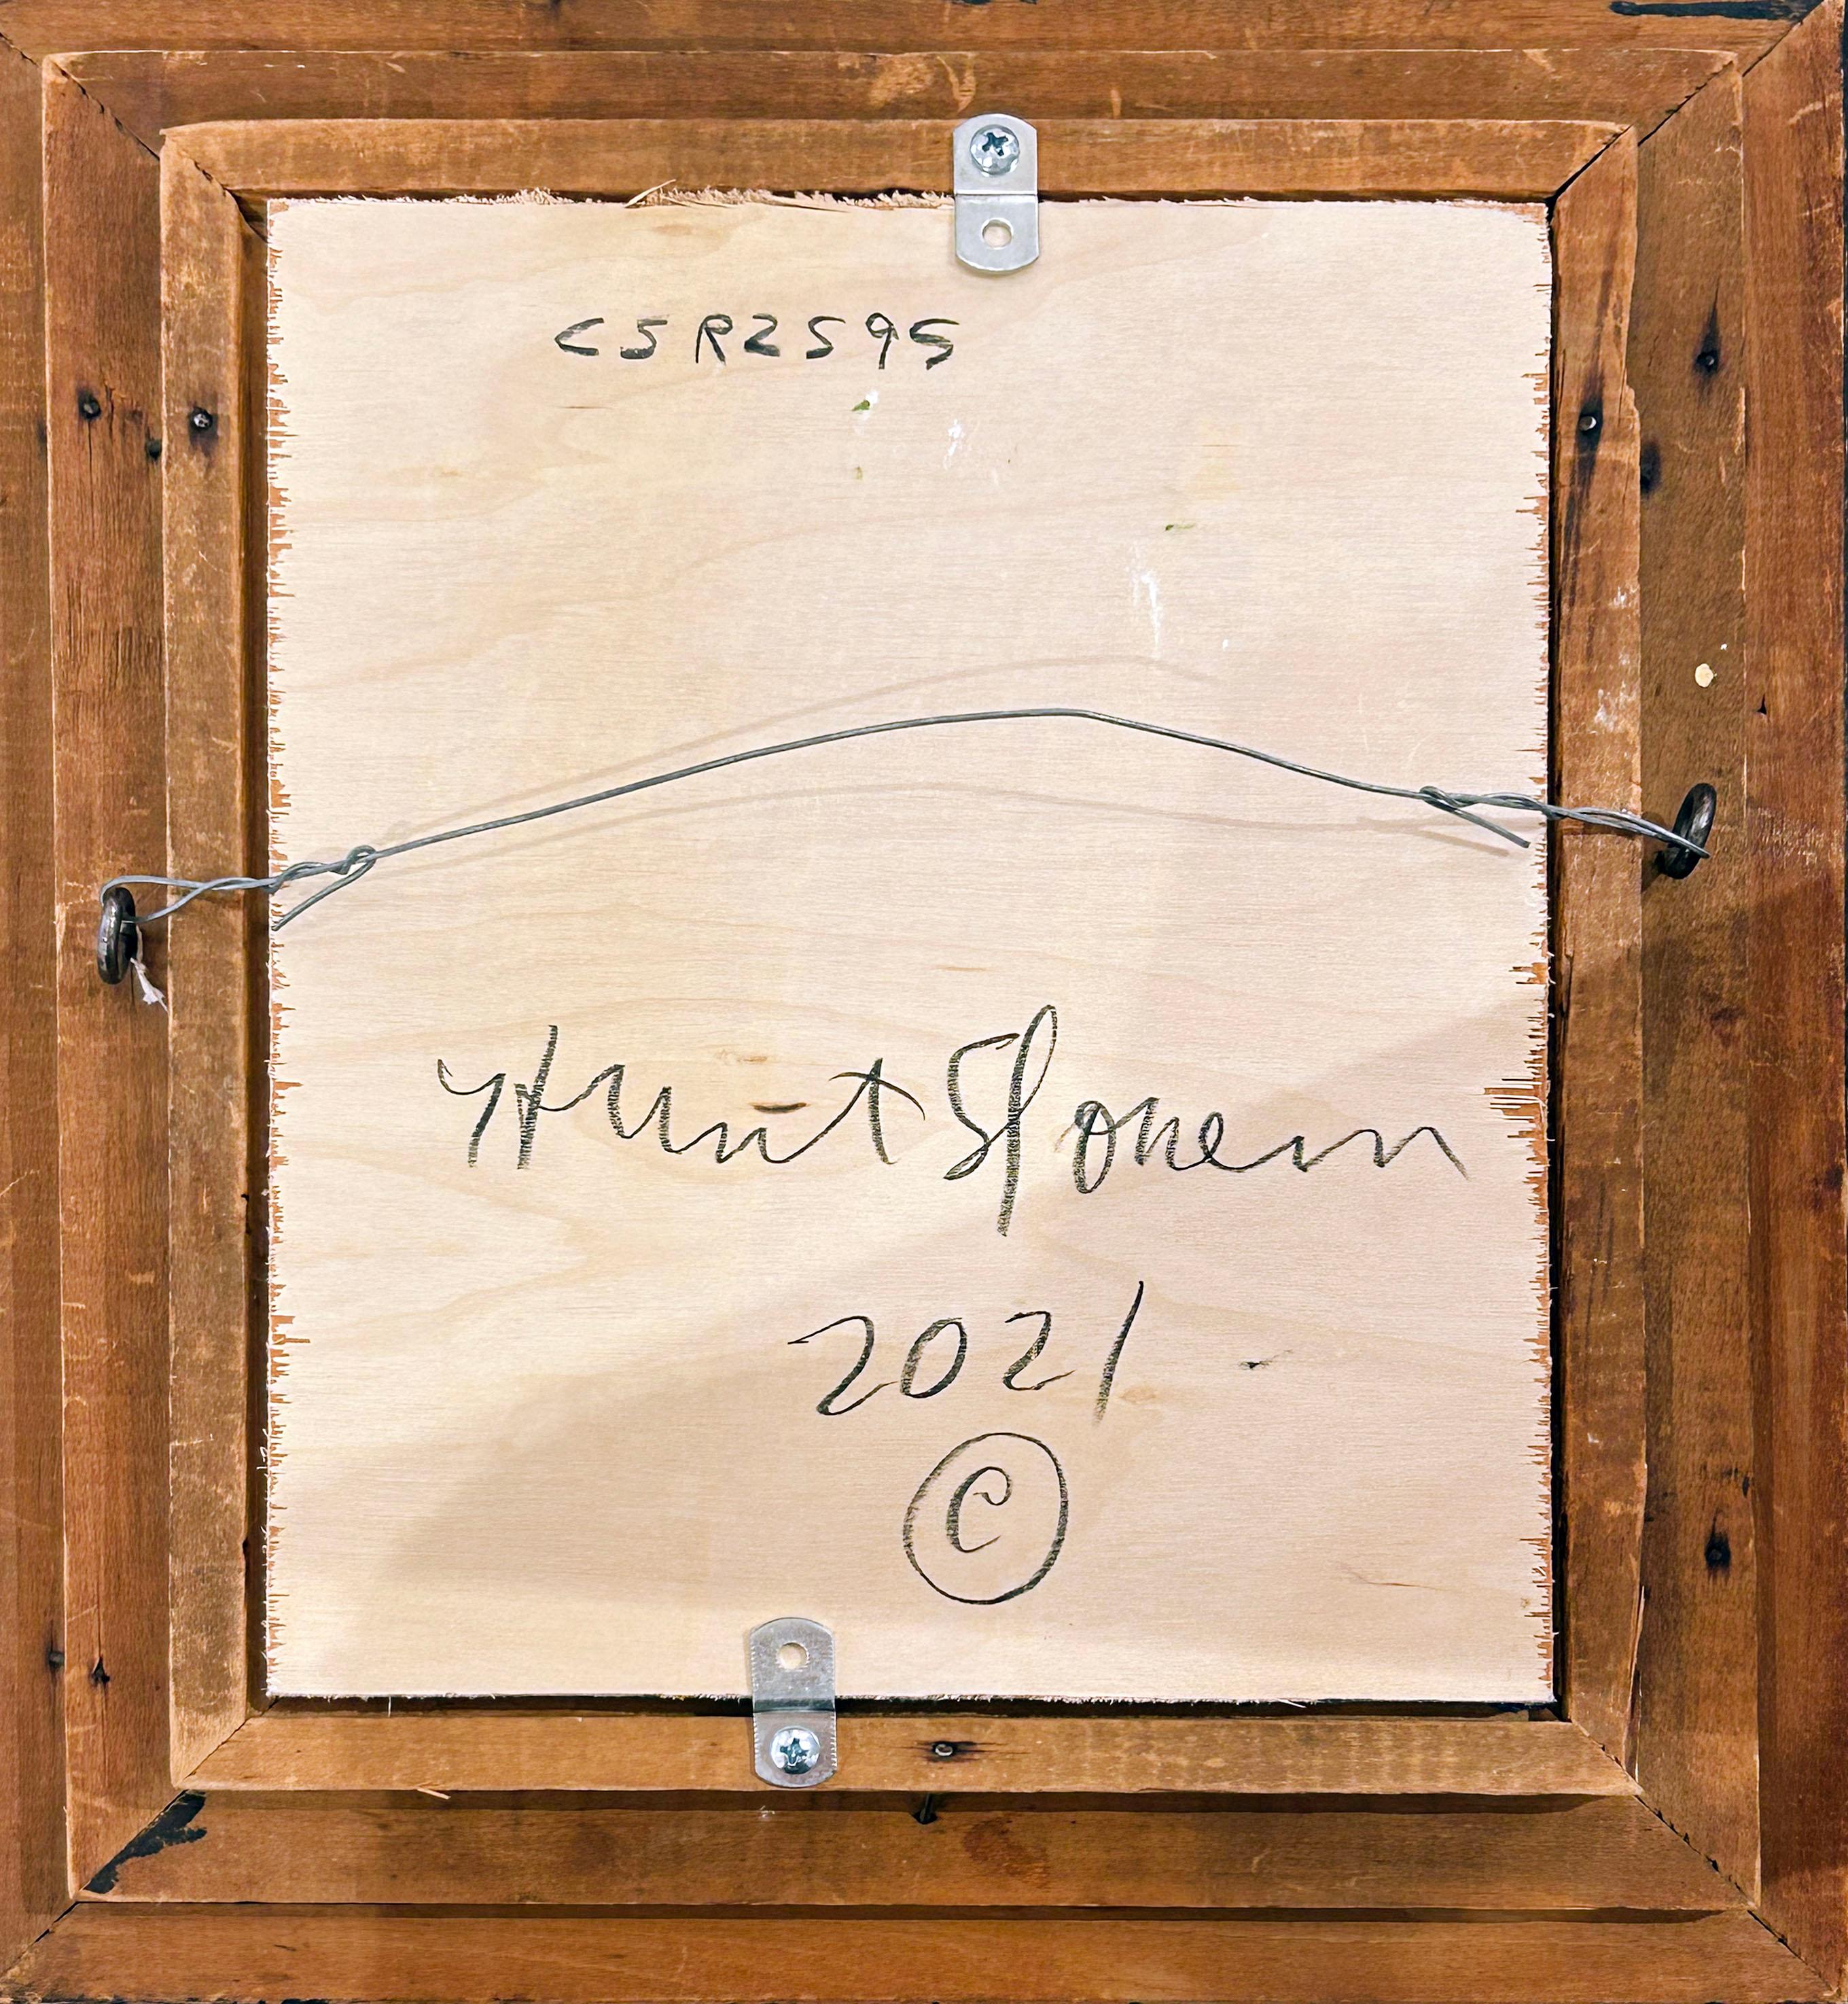 CSR2595
Hunt Slonem
2021
©